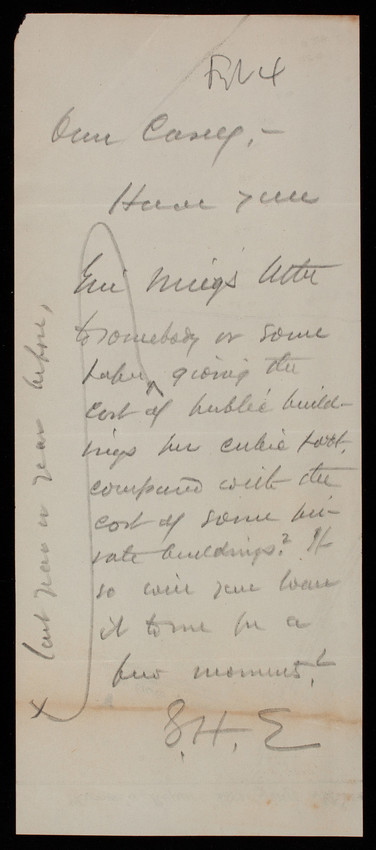 Feb 4
Dear Casey,—
Have you
Gen Meigs letter
to somebody or some
paper, giving the
cost of public build-
ings per cubic foot,
compared with the
cost of some pri-
vate buildings? If
so will you loan
it to me for a
few moments?
S. H. E
x last year or year before,